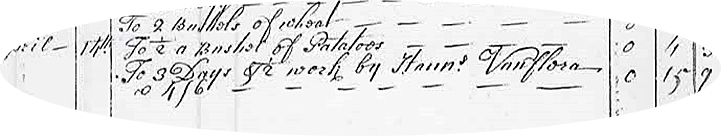 To 2 Bushels of wheat
14th To ½ a Bushel of Patatoes 0 4
To 3 Days & ½ work by Hauns Vanflora 0 15 9
@ 4/6